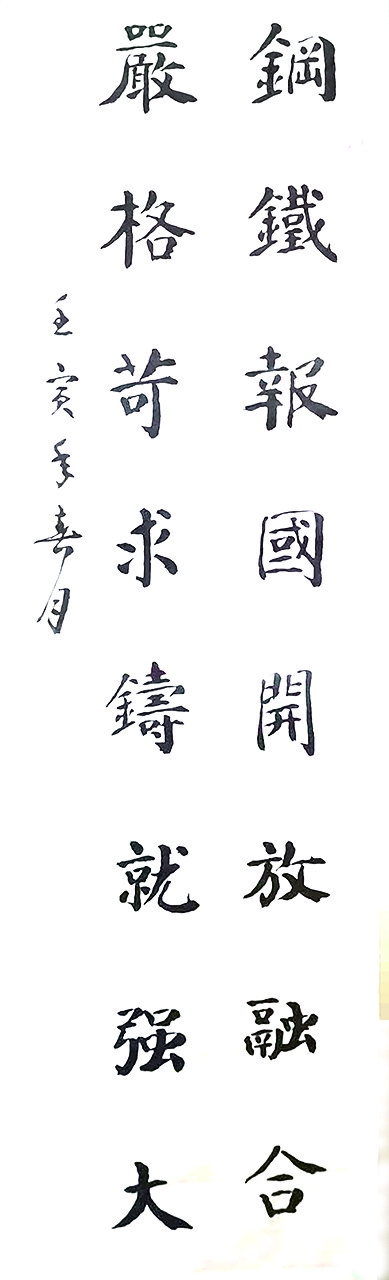 鋼鐵報國開放融合
嚴格苛求鑄就强大
壬寅年喜月